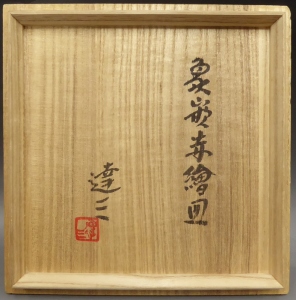 象嵌赤繪皿
達三